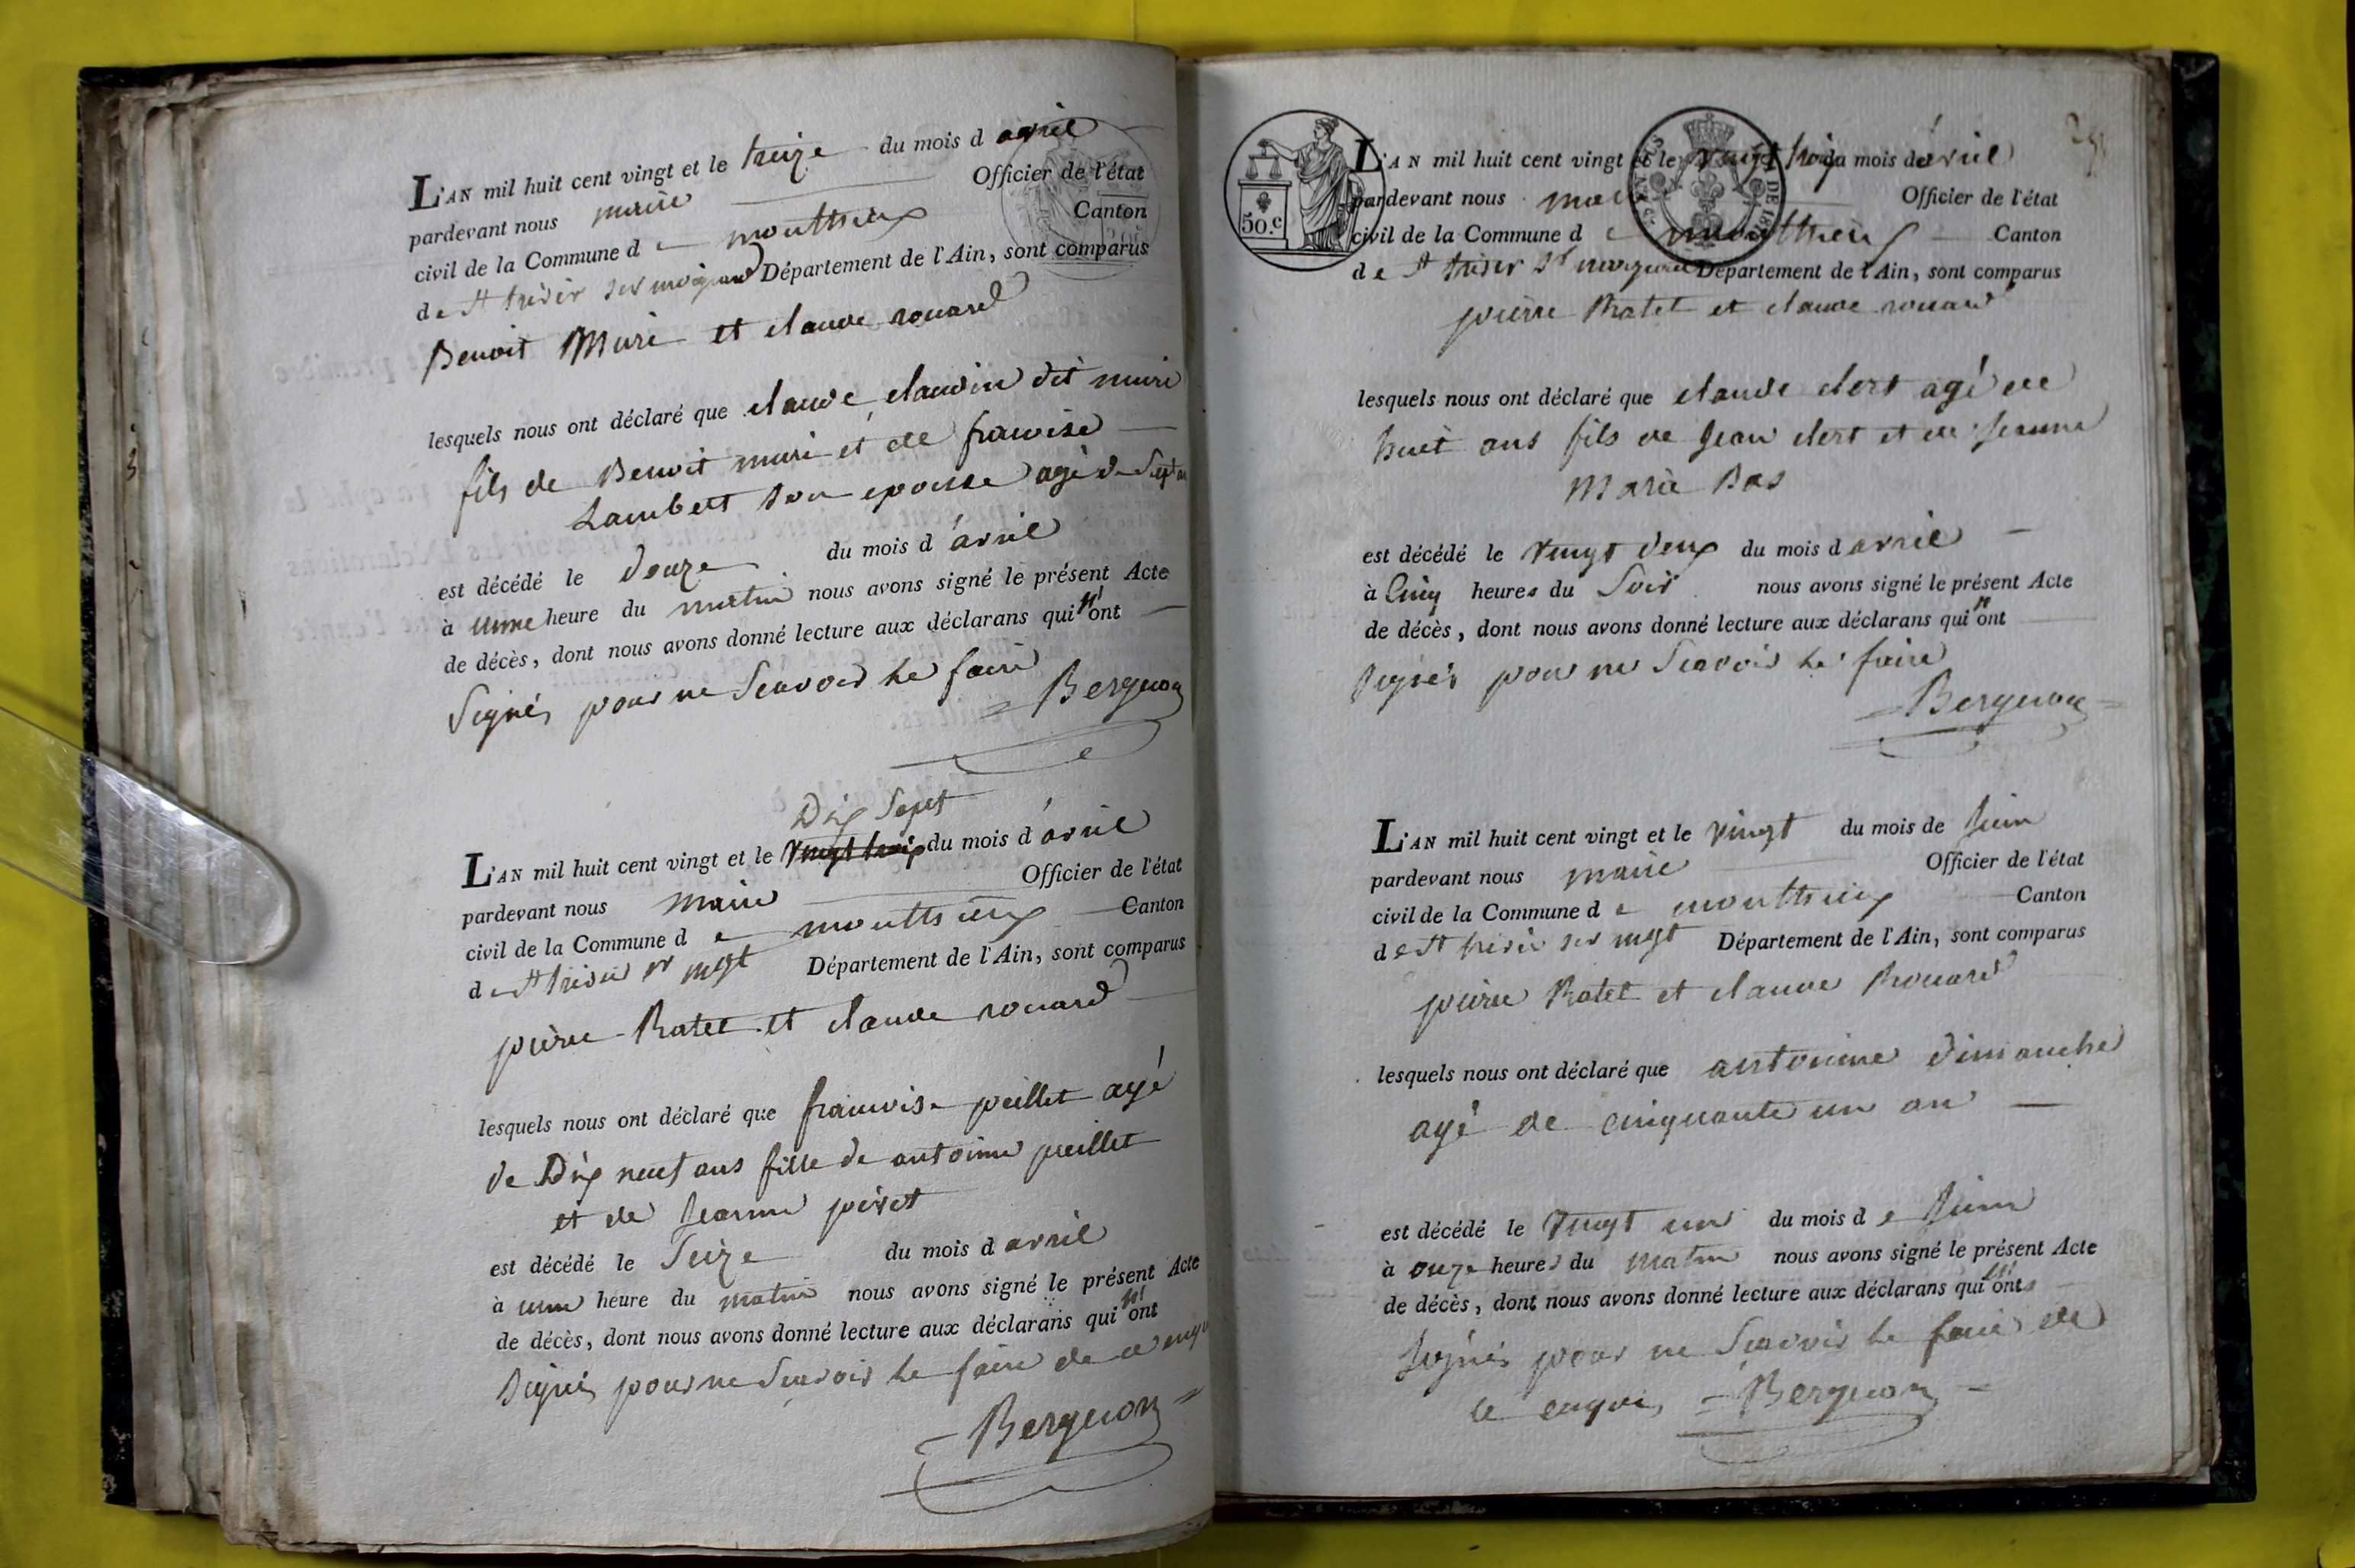 L'AN mil huit cent vingt et le treize du mois d avril
pardevant nous maire Officier de l'état
civil de la Commune d e monthieux Canton
de St trivier sur moignand Département de l'Ain, sont comparus
Benoit Muri et claude rouard
lesquels nous ont déclaré que claude claudin dit muri
fils de Benoit muri et de francoise
Lambert son epouse agé de Sept an
est décédé le douze du mois d'avril
à unne heure du matin nous avons signé le présent Acte
de décès, dont nous avons donné lecture aux déclarans qui n'ont
Signés pour ne Scavoir le faire
Berguon
Dix Sept
L'AN mil huit cent vingt et le vingt trois du mois d'avril
pardevant nous maire Officier de l'état
civil de la Commune d e monthieux Canton
de St trivier sr mgt Département de l'Ain, sont comparus
pierre Ratet et claude rouard
lesquels nous ont déclaré que francoise peillet agé
de Dix neuf ans fille de antoine peillet
et de Jeanne pivet
est décédé le Seize du mois d avril
à unne heure du matin nous avons signé le présent Acte
de décès, dont nous avons donné lecture aux déclarans qui n'ont
Signés pour ne Scavoir le faire de ce enqui
Berguon
50.c
L'AN mil huit cent vingt et le vingt trois du mois d'avril
pardevant nous maire Officier de l'état
civil de la Commune d e monthieux Canton
de St trivier sr moignand Département de l'Ain, sont comparus
pierre Ratet et claude rouard
lesquels nous ont déclaré que claude clert agé de
huit ans fils de Jean clert et de Jeanne
Marie Bas
est décédé le vingt deux du mois d avril
à Cinq heures du Soir nous avons signé le présent Acte
de décès, dont nous avons donné lecture aux déclarans qui n'ont
signés pour ne Scavoir le faire
Berguon
L'AN mil huit cent vingt et le vingt du mois de Juin
pardevant nous maire Officier de l'état
civil de la Commune d e monthieux Canton
de St trivier sur mgt Département de l'Ain, sont comparus
pierre Ratet et claude Rouard
lesquels nous ont déclaré que antoinne dimanche
agé de cinquante un an
est décédé le vingt un du mois d e Juin
à onze heures du matin nous avons signé le présent Acte
de décès, dont nous avons donné lecture aux déclarans qui n'ont
signés pour ne Scavoir le faire de
ce enquis Berguon